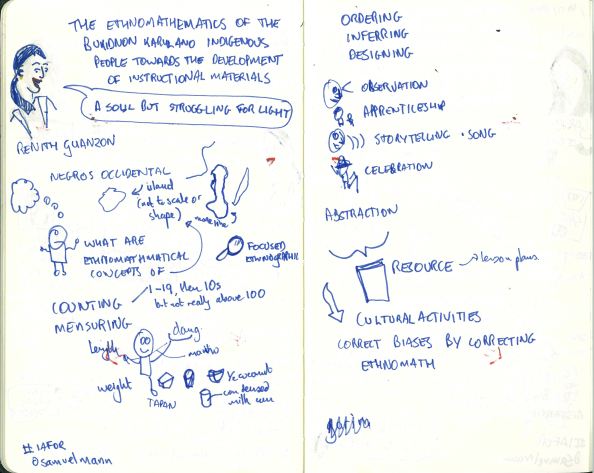 THE ETHNOMATHEMATICS OF THE
BUKIDNON KARULANO INDIGENOUS
PEOPLE TOWARDS THE DEVELOPMENT
OF INSTRUCTIONAL MATERIALS
A SOUL BUT STRUGGLING FOR LIGHT
RENITH GUANZON
NEGROS OCCIDENTAL
island
(not to scale or
shape)
more like
WHAT ARE
ETHNOMATHMATICAL
CONCEPTS OF
FOCUSED
COUNTING
1-19, then 10s
but not really above 100
MEASURING
length
dang
weight
TAPAN
½ coconut
condensed
milk can
#14FOR
@samuelmann
ORDERING
INFERRING
DESIGNING
OBSERVATION
APPRENTICESHIP
STORYTELLING · SONG
CELEBRATION
ABSTRACTION
RESOURCE → lesson plans
CULTURAL ACTIVITIES
CORRECT BIASES BY CORRECTING
ETHNOMATH